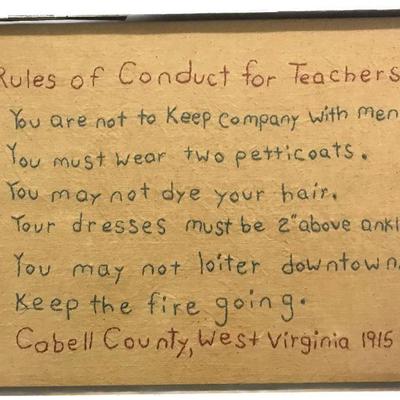 Rules of Conduct for Teachers
You are not to Keep company with men
You must wear two petticoats.
You may not dye your hair.
Your dresses must be 2" above ankl
You may not loiter downtown.
Keep the fire going.
Cabell County, West Virginia 1915